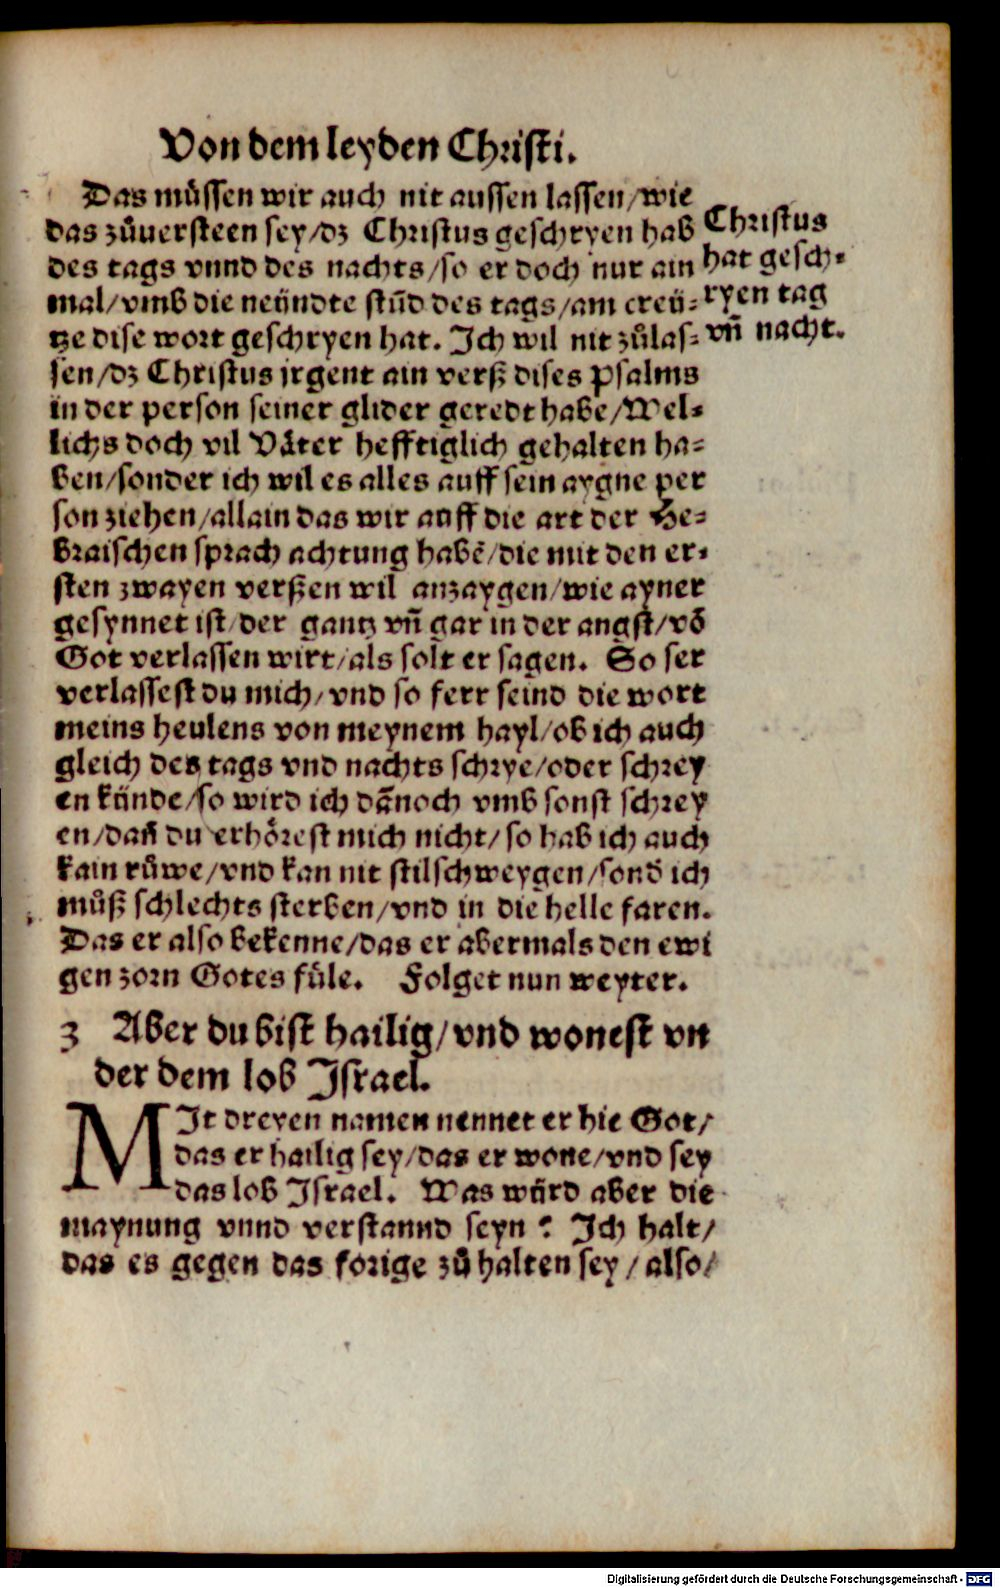 Von dem leyden Christi.
Das müssen wir auch nit aussen lassen/wie
das zůuersteen sey/dz Christus geschryen hab
des tags vnnd des nachts/so er doch nur ain
mal/vmb die neündte stūd des tags/am creü-
tze dise wort geschryen hat. Ich wil nit zůlas-
sen/dz Christus jrgent ain verß dises psalms
in der person seiner glider geredt habe/Wel-
lichs doch vil Väter hefftiglich gehalten ha-
ben/sonder ich wil es alles auff sein aygne per
son ziehen/allain das wir auff die art der He-
braischen sprach achtung habē/die mit den er-
sten zwayen verßen wil anzaygen/wie ayner
gesynnet ist/der gantz vñ gar in der angst/võ
Got verlassen wirt/als solt er sagen. So ser
verlassest du mich/vnd so ferr seind die wort
meins heulens von meynem hayl/ob ich auch
gleich des tags vnd nachts schrye/oder schrey
en künde/so wird ich dañoch vmb sonst schrey
en/dañ du erhörest mich nicht/so hab ich auch
kain růwe/vnd kan nit stilschweygen/sond̄ ich
můß schlechts sterben/vnd in die helle faren.
Das er also bekenne/das er abermals den ewi
gen zorn Gotes füle. Folget nun weyter.
3 Aber du bist hailig/vnd wonest vn
der dem lob Israel.
MIt dreyen namen nennet er hie Got/
das er hailig sey/das er wone/vnd sey
das lob Israel. Was würd aber die
maynung vnnd verstannd seyn? Ich halt/
das es gegen das forige zů halten sey/also/
Christus
hat gesch-
ryen tag
vñ nacht.
Digitalisierung gefördert durch die Deutsche Forschungsgemeinschaft - DFG